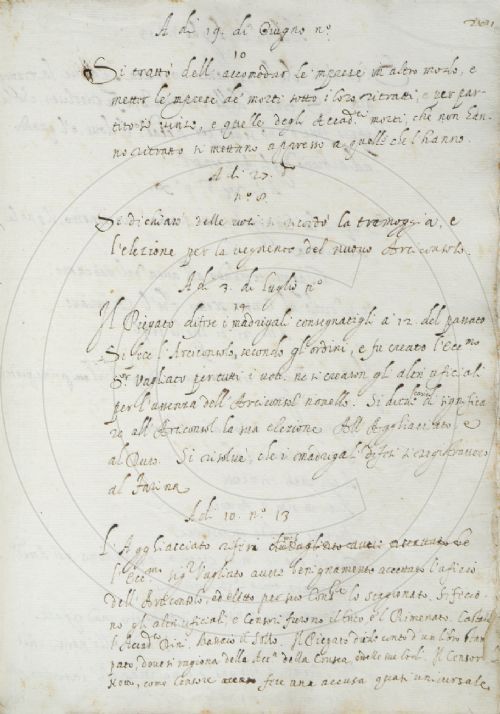 A dì 19. di Giugno n.o
10
Si trattò dell'accomodar le imprese in altro modo, e
metter le imprese de morti sotto i loro ritratti, e per par-
tito fù vinto, e quelle degli Accad.ci morti, che non han-
no ritratto si mettano appresso a quelli che l'hanno.
A dì 27. d.o
n.o 8.
Si dichiarò delle voti si ricordò la tramoggia, e
l'elezione per la vegnente del nuovo Arciconsolo.
A dì 3. di luglio n.o
14
Il Piegato difese i madrigali consegnatigli a 12. del passato
Si fece l'Arciconsolo, secondo gl'ordini, e fu creato l'Ecc.mo
S.r Vagliato per tutti i voti. ne si crearon gl'altri uficiali
per l'assenza dell'Arciconsol novello. Si dette di significa-
re all'Arciconsol la sua elezione All'Agghiacciato e
al Duro. Si risolvè, che i madrigali difesi si
al Farina
A dì 10. n.o 13
L'Agghiacciato riferì
l'Ecc.mo sig.r Vagliato avere benignamente accettato l'uficio
dell'Arciconsolo, ed eletto per suo Cons.re lo Scagionato. Si feco-
no gl'altri uficiali; e Censori furono il Trito, e 'l Rimenato.
l'Accad.co Il Piegato diede conto d'un libro stam-
pato, dove si ragiona della Acc.a della Crusca, Il Censor
come Censore fece una accusa quasi universale